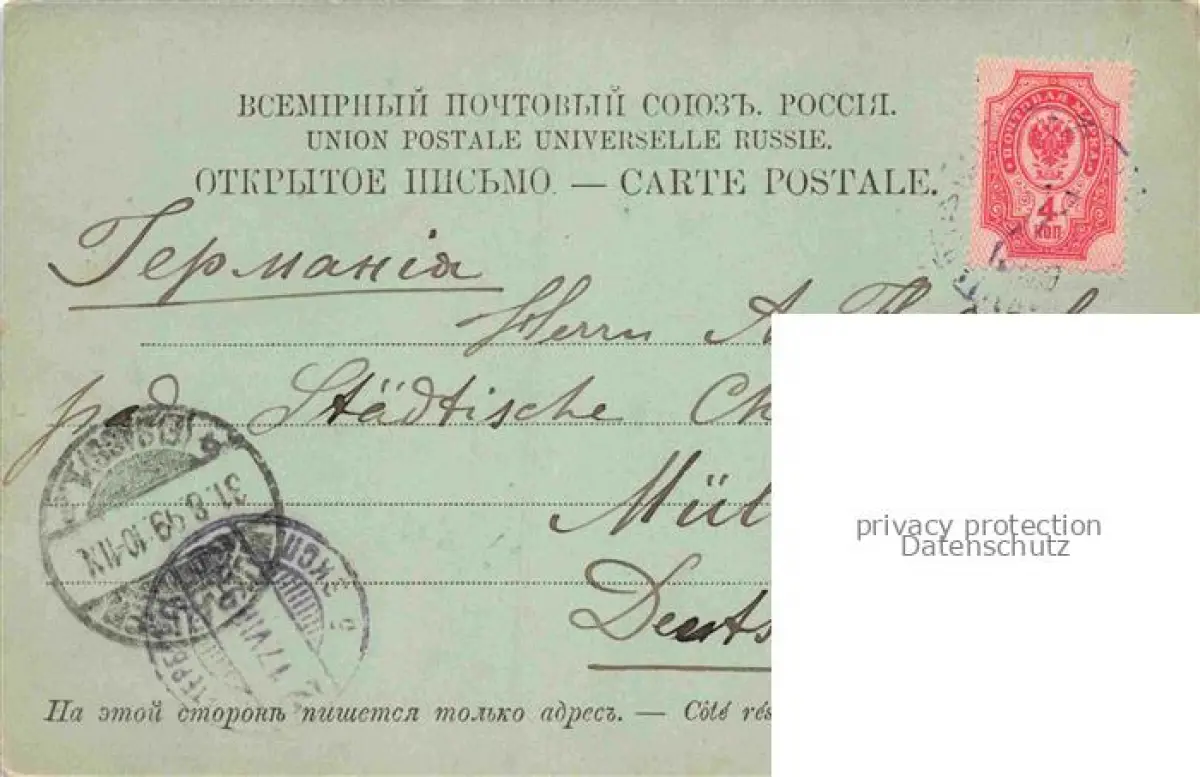 ВСЕМІРНЫЙ ПОЧТОВЫЙ СОЮЗЪ. РОССІЯ.
UNION POSTALE UNIVERSELLE RUSSIE.
ОТКРЫТОЕ ПИСЬМО. — CARTE POSTALE.
ПОЧТОВАЯ МАРКА
4
КОП
Германія
Herrn A.
Städtische
Mül
Deuts
(ELSASS)
31. 8. 99. 10-11 N.
17 VIII
На этой сторонѣ пишется только адресъ. — Côté rés
privacy protection
Datenschutz